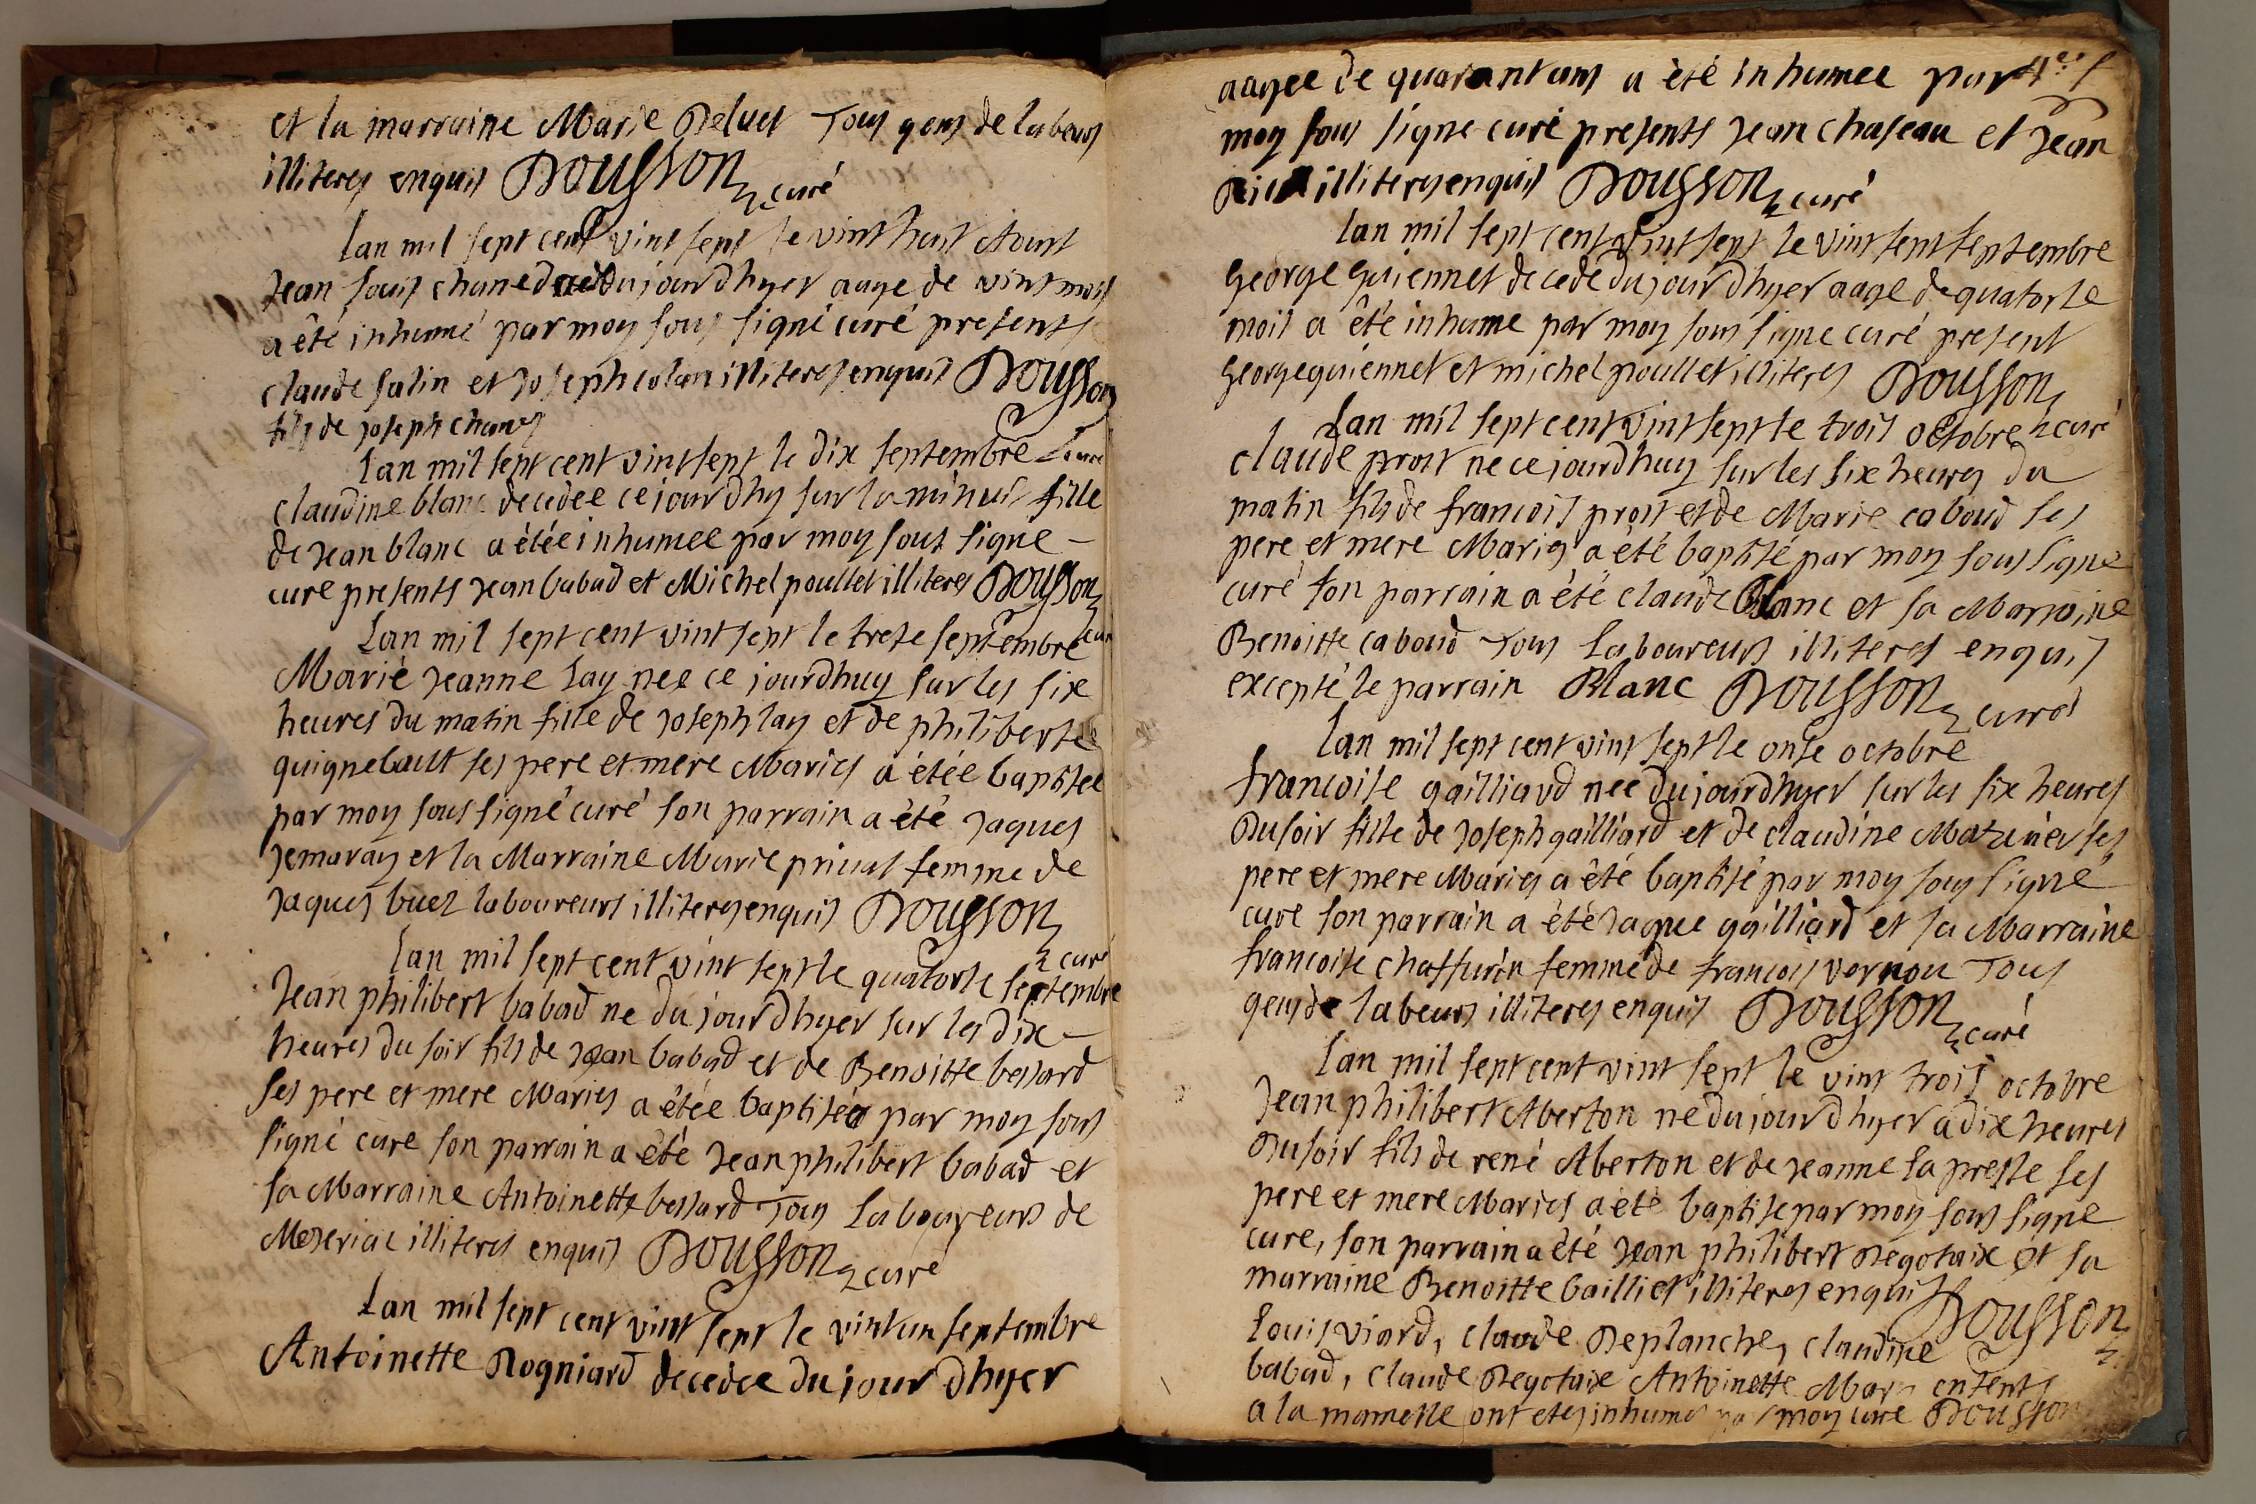 et la marraine Marie Peluet Tous gens de labeurs
illiteres enquis Dousson curé
Lan mil sept cent vint sept le vint huit Aoust
Jean louis chane decedé dujourdhyer aage de vint mois
a été inhumé par moy sous signé curé presents
claude salin et Joseph colan illiteres enquis Dousson
fils de joseph chanes curé
Lan mil sept cent vint sept le dix septembre
claudine blanc decedee ce jourdhy sur la minuit fille
de Jean blanc a étée inhumee par moy sous signe
curé presents Jean babad et Michel poullet illiteres Dousson
Lan mil sept cent vint sept le treze septembre curé
Marie Jeanne lay nee ce jourdhuy sur les six
heures du matin fille de Joseph lay et de philiberte
guignebault ses pere et mere Maries a étée baptisee
par moy sous signé curé son parrain a été Jaques
Jemaray et la Marraine Marie privat femme de
Jaques buez laboureurs illiteres enquis Dousson
curé
Lan mil sept cent vint sept le quatorse septembre
Jean philibert babad ne du jourdhyer sur les dix
heures du soir fils de Jean babad et de Benoitte bessard
ses pere et mere Maries a étée baptisé par moy sous
signé curé son parrain a été Jean philibert babad et
sa Marraine Antoinette bessard Tous laboureurs de
Meseriac illiteres enquis Dousson curé
Lan mil sept cent vint sept le vint un septembre
Antoinette Rogniard decedee du jour dhyer
aagee de quarant ans a été inhumee par
moy sous signe curé presents Jean chaseau et Jean
illiteres enquis Dousson curé
Lan mil sept cent vint sept le vint sept septembre
George guiennet decede dujour dhyer aage de quatorse
mois a été inhume par moy sous signe curé present
George guiennet et michel poullet illiteres Dousson
curé
Lan mil sept cent vint sept le trois octobre
claude prost ne ce jourdhuy sur les six heures du
matin fils de francois prost et de Marie caboud ses
pere et mere Maries a été baptisé par moy sous signe
curé son parrain a été claude Blanc et sa Marraine
Benoitte caboud Tous laboureurs illiteres enquis
excepté le parrain Blanc Dousson curé
Lan mil sept cent vint sept le onse octobre
francoise gailliard nee dujourdhyer sur les six heures
Dusoir fille de Joseph gailliard et de claudine Mazuier ses
pere et mere Maries a été baptisé par moy sous signé
curé son parrain a été Jaque gailliard et sa Marraine
francoise chaffurin femme de francois vernou Tous
gens de labeurs illiteres enquis Dousson curé
Lan mil sept cent vint sept le vint trois octobre
Jean philibert Aberton ne dujourdhyer a dix heures
Dusoir fils de rené Aberton et de Jeanne la presle ses
pere et mere Maries a été baptise par moy sous signe
curé, son parrain a été Jean philibert Degotaix et sa
marraine Benoitte baillict illiteres enquis Dousson
Louis viard, claude Deplanche, claudine
babad, claude Degotaix Antoinette enfents
a la mamelle ont etes inhumes par moy curé Dousson